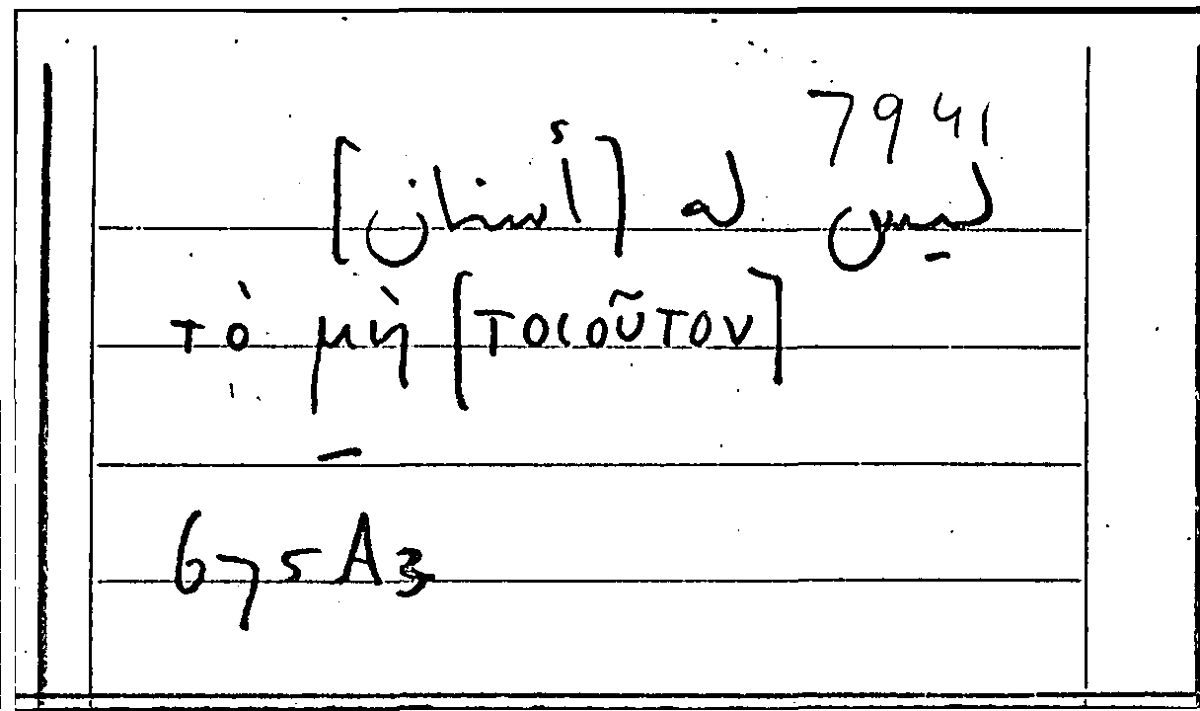 7941
ليس له [أسنان]
τὸ μὴ [τοιοῦτον]
675A3